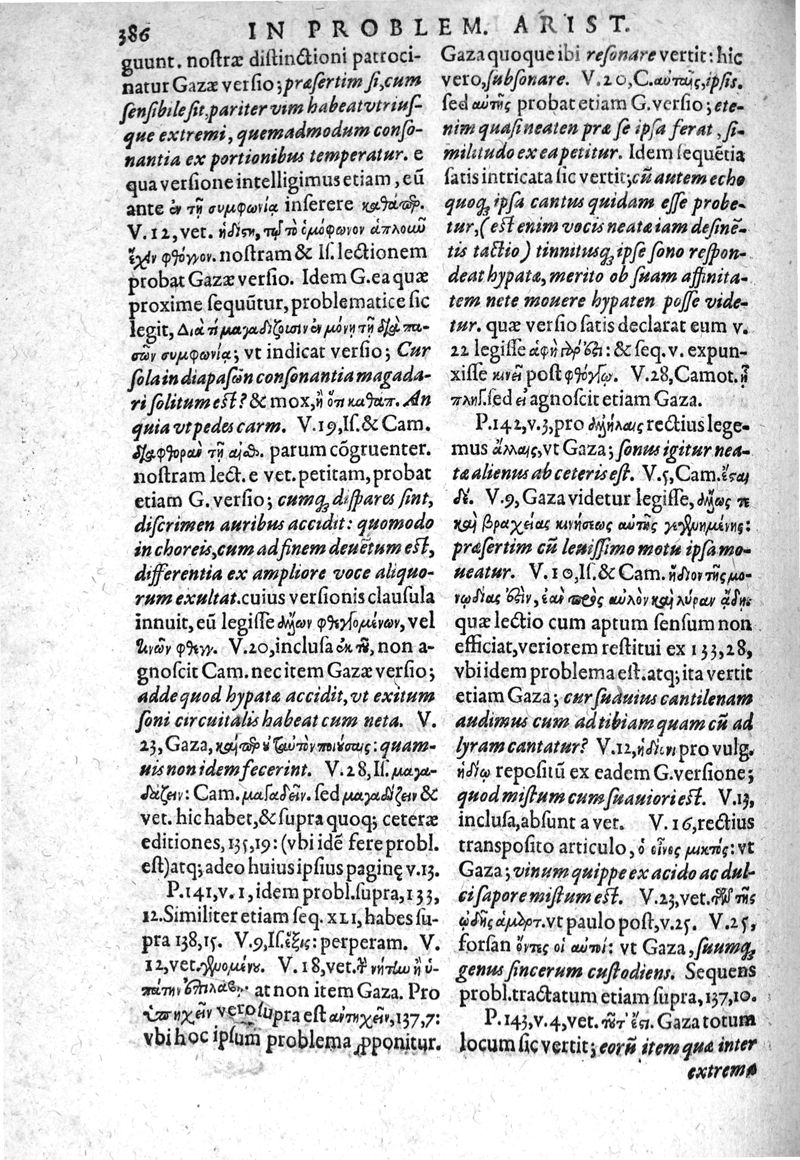 386 IN PROBLEM. ARIST.
guunt. nostræ distinctioni patroci-
natur Gazæ versio; præsertim si, cum
sensibile sit, pariter vim habeat vtrius-
que extremi, quemadmodum conso-
nantia ex portionibus temperatur. e
qua versione intelligimus etiam, eũ
ante ἐν τῇ συμφωνίᾳ inserere καθάπερ.
V. 12, vet. ἥδιον, τῷ τὸ ὁμόφωνον ἁπλοῦν
ἔχειν φθόγγον. nostram & Is. lectionem
probat Gazæ versio. Idem G. ea quæ
proxime sequũtur, problematice sic
legit, Διὰ τί μαγαδίζουσιν ἐν μόνῃ τῇ διὰ πα-
σῶν συμφωνίᾳ; vt indicat versio; Cur
sola in diapasῶn consonantia magada-
ri solitum est? & mox, ἢ ὅτι καθάπ. An
quia vt pedes carm. V. 19, Is. & Cam.
διαφθορὰν τῇ αἰσθ. parum cõgruenter.
nostram lect. e vet. petitam, probat
etiam G. versio; cumq; dispares sint,
discrimen auribus accidit: quomodo
in choreis, cum ad finem deuẽtum est,
differentia ex ampliore voce aliquo-
rum exultat. cuius versionis clausula
innuit, eũ legisse ἄλλων φθεγγομένων, vel
τινῶν φθεγγ. V. 20, inclusa ἐκ τοῦ, non a-
gnoscit Cam. nec item Gazæ versio;
adde quod hypatæ accidit, vt exitum
soni circuitalis habeat cum neta. V.
23, Gaza, καίπερ οὐ ταὐτὸν ποιούσαις: quam-
uis non idem fecerint. V. 28, Is. μαγα-
δάζειν: Cam. μασαδεῖν. sed μαγαδίζειν &
vet. hic habet, & supra quoq; ceteræ
editiones, 135, 19: (vbi idẽ fere probl.
est) atq; adeo huius ipsius paginę v. 13.
P. 141, v. 1, idem probl. supra, 133,
12. Similiter etiam seq. XLI, habes su-
pra 138, 15. V. 9, Is. ἕξις: perperam. V.
12, vet. γινομένου. V. 18, vet. τ νήτην ἢ ὑ-
πάτην at non item Gaza. Pro
ὑπηχεῖν vero supra est ἀντηχεῖν, 137, 7:
vbi hoc ipsum problema ꝓponitur.
Gaza quoque ibi resonare vertit: hic
vero, subsonare. V. 20, C. αὐταῖς, ipsis.
sed αὐτῆς probat etiam G. versio; ete-
nim quasi neaten præ se ipsa ferat, si-
militudo ex ea petitur. Idem sequẽtia
satis intricata sic vertit; cũ autem echo
quoq; ipsa cantus quidam esse probe-
tur, (est enim vocis neatæ iam desinẽ-
tis tactio) tinnitusq; ipse sono respon-
deat hypatæ, merito ob suam affinita-
tem nete mouere hypaten posse vide-
tur. quæ versio satis declarat eum v.
22 legisse : & seq. v. expun-
xisse κινεῖ post φθόγγῳ. V. 28, Camot. ἢ
πλησ. sed εἰ agnoscit etiam Gaza.
P. 142, v. 3, pro ἀλλήλαις rectius lege-
mus ἄλλαις, vt Gaza; sonus igitur nea-
tæ alienus ab ceteris est. V. 5, Cam. ἔσαι
δέ. V. 9, Gaza videtur legisse, ἄλλως τε
καὶ βραχείας κινήσεως αὐτῆς γεγενημένης:
præsertim cũ leuissimo motu ipsa mo-
ueatur. V. 10, Is. & Cam. ἥδιον τῆς μο-
νῳδίας ἐστὶν, ἐὰν πρὸς αὐλὸν καὶ λύραν ᾄδῃ:
quæ lectio cum aptum sensum non
efficiat, veriorem restitui ex 133, 28,
vbi idem problema est. atq; ita vertit
etiam Gaza; cur suauius cantilenam
audimus cum ad tibiam quam cũ ad
lyram cantatur? V. 12, ἡδίονι pro vulg.
ἡδίω repositũ ex eadem G. versione;
quod mistum cum suauiori est. V. 13,
inclusa, absunt a vet. V. 16, rectius
transposito articulo, ὁ οἶνος μικτός: vt
Gaza; vinum quippe ex acido ac dul-
ci sapore mistum est. V. 23, vet. τῆς
ᾠδῆς ἁμαρτ. vt paulo post, v. 25. V. 25,
forsan ὄντες οἱ αὐτοί: vt Gaza, suumq;
genus sincerum custodiens. Sequens
probl. tractatum etiam supra, 137, 10.
P. 143, v. 4, vet. Gaza totum
locum sic vertit; eorũ item quæ inter
extrema